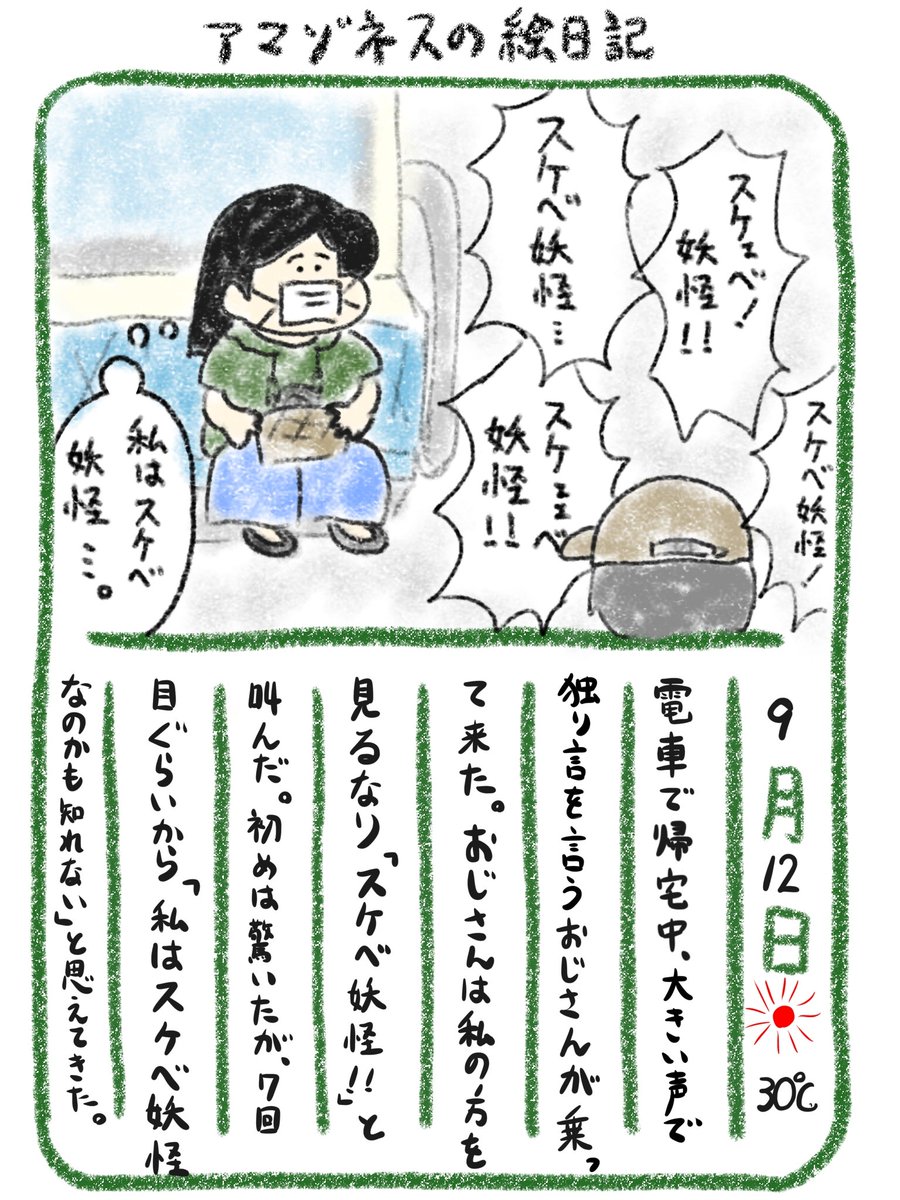 アマゾネスの絵日記
スケェベ！
妖怪！！
スケベ妖怪…
スケベ妖怪！
スケェベ
妖怪！！
私はスケベ
妖怪…。
9月12日
30℃
電車で帰宅中、大きい声で
独り言を言うおじさんが乗っ
て来た。おじさんは私の方を
見るなり「スケベ妖怪！！」と
叫んだ。初めは驚いたが、7回
目ぐらいから「私はスケベ妖怪
なのかも知れない」と思えてきた。